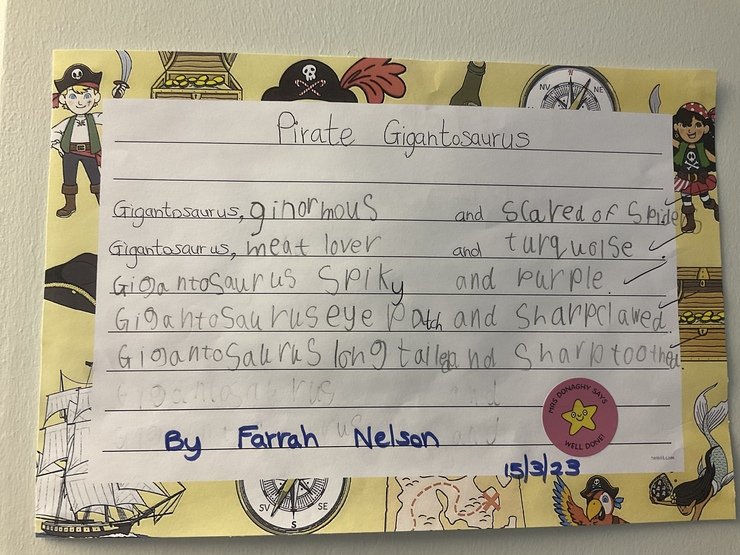 Pirate Gigantosaurus
Gigantosaurus, ginormous and scared of Spide
Gigantosaurus, meat lover and turquoise.
Gigantosaurus Spiky and purple.
Gigantosaurus eye Patch and sharpclawed.
Gigantosaurus long tailed and sharptoothed.
Gigantosaurus and
and
By Farrah Nelson
MRS DONAGHY SAYS
WELL DONE!
15/3/23
N
NV
NE
SV
S
SE